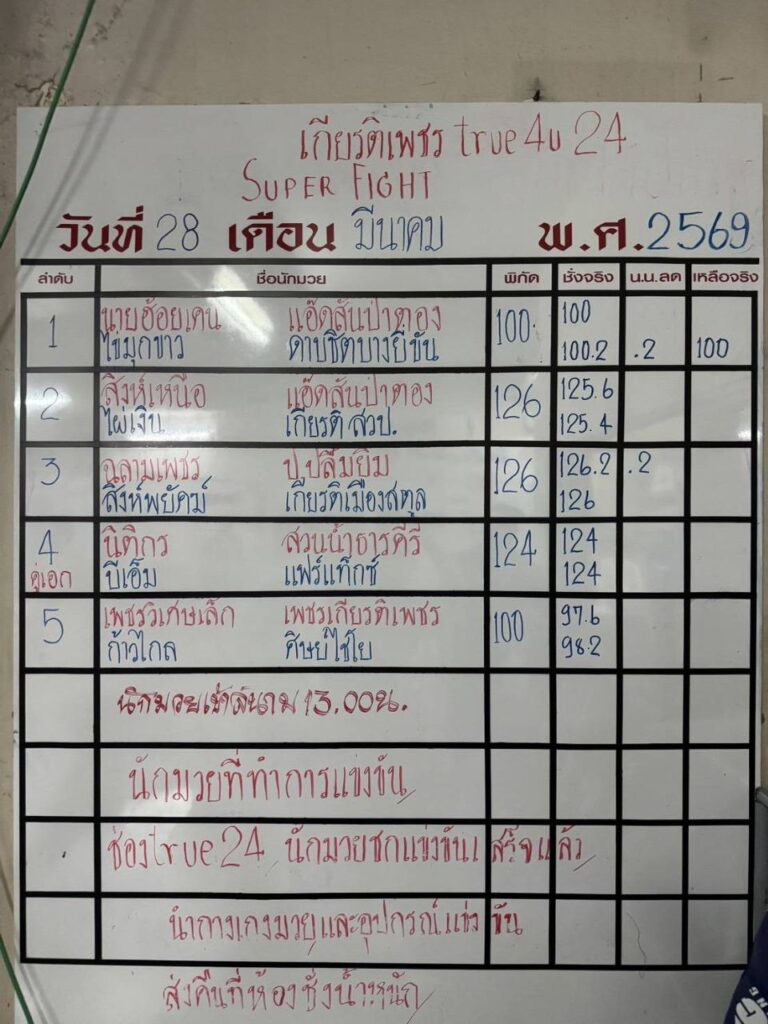 เกียรติเพชร true4u 24
SUPER FIGHT
วันที่ 28 เดือน มีนาคม พ.ศ. 2569
ลำดับ ชื่อนักมวย พิกัด ชั่งจริง น.น.ลด เหลือจริง
1 นายฮ้อยเคน แอ๊ดสันป่าตอง 100 100
ไข่มุกขาว ดาบชิตบางยี่ขัน 100.2 .2 100
2 สิงห์เหนือ แอ๊ดสันป่าตอง 126 125.6
ไผ่เงิน เกียรติ สวป. 125.4
3 ฉลามเพชร ป.ปลื้มยิ้ม 126 126.2 .2
สิงห์พยัคฆ์ เกียรติเมืองสตูล 126
4 นิติกร สวนน้ำธารคีรี 124 124
คู่เอก บีเอ็ม แฟร์แท็กซ์ 124
5 เพชรวิเศษเล็ก เพชรเกียรติเพชร 100 97.6
ก้าวไกล ศิษย์ไชโย 98.2
นักมวยเข้าสนาม 13.00น.
นักมวยที่ทำการแข่งขัน
ช่องtrue24 นักมวยชกแข่งขันเสร็จแล้ว
นำกางเกงมวยและอุปกรณ์แข่งขัน
ส่งคืนที่ห้องชั่งน้ำหนัก